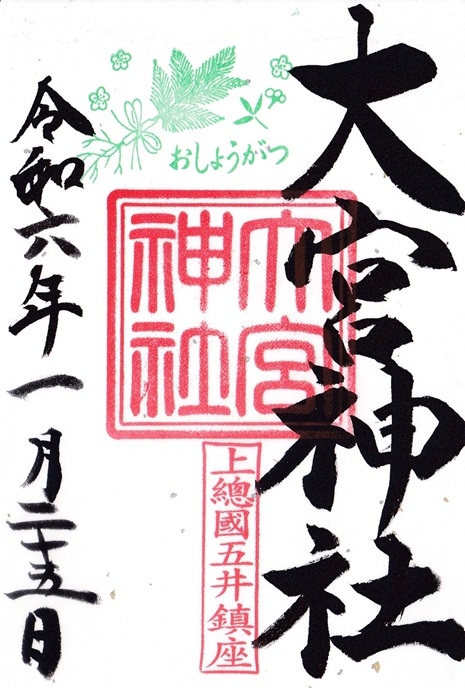 大宮神社
おしょうがつ
大宮
神社
上總國五井鎮座
令和六年一月二十五日